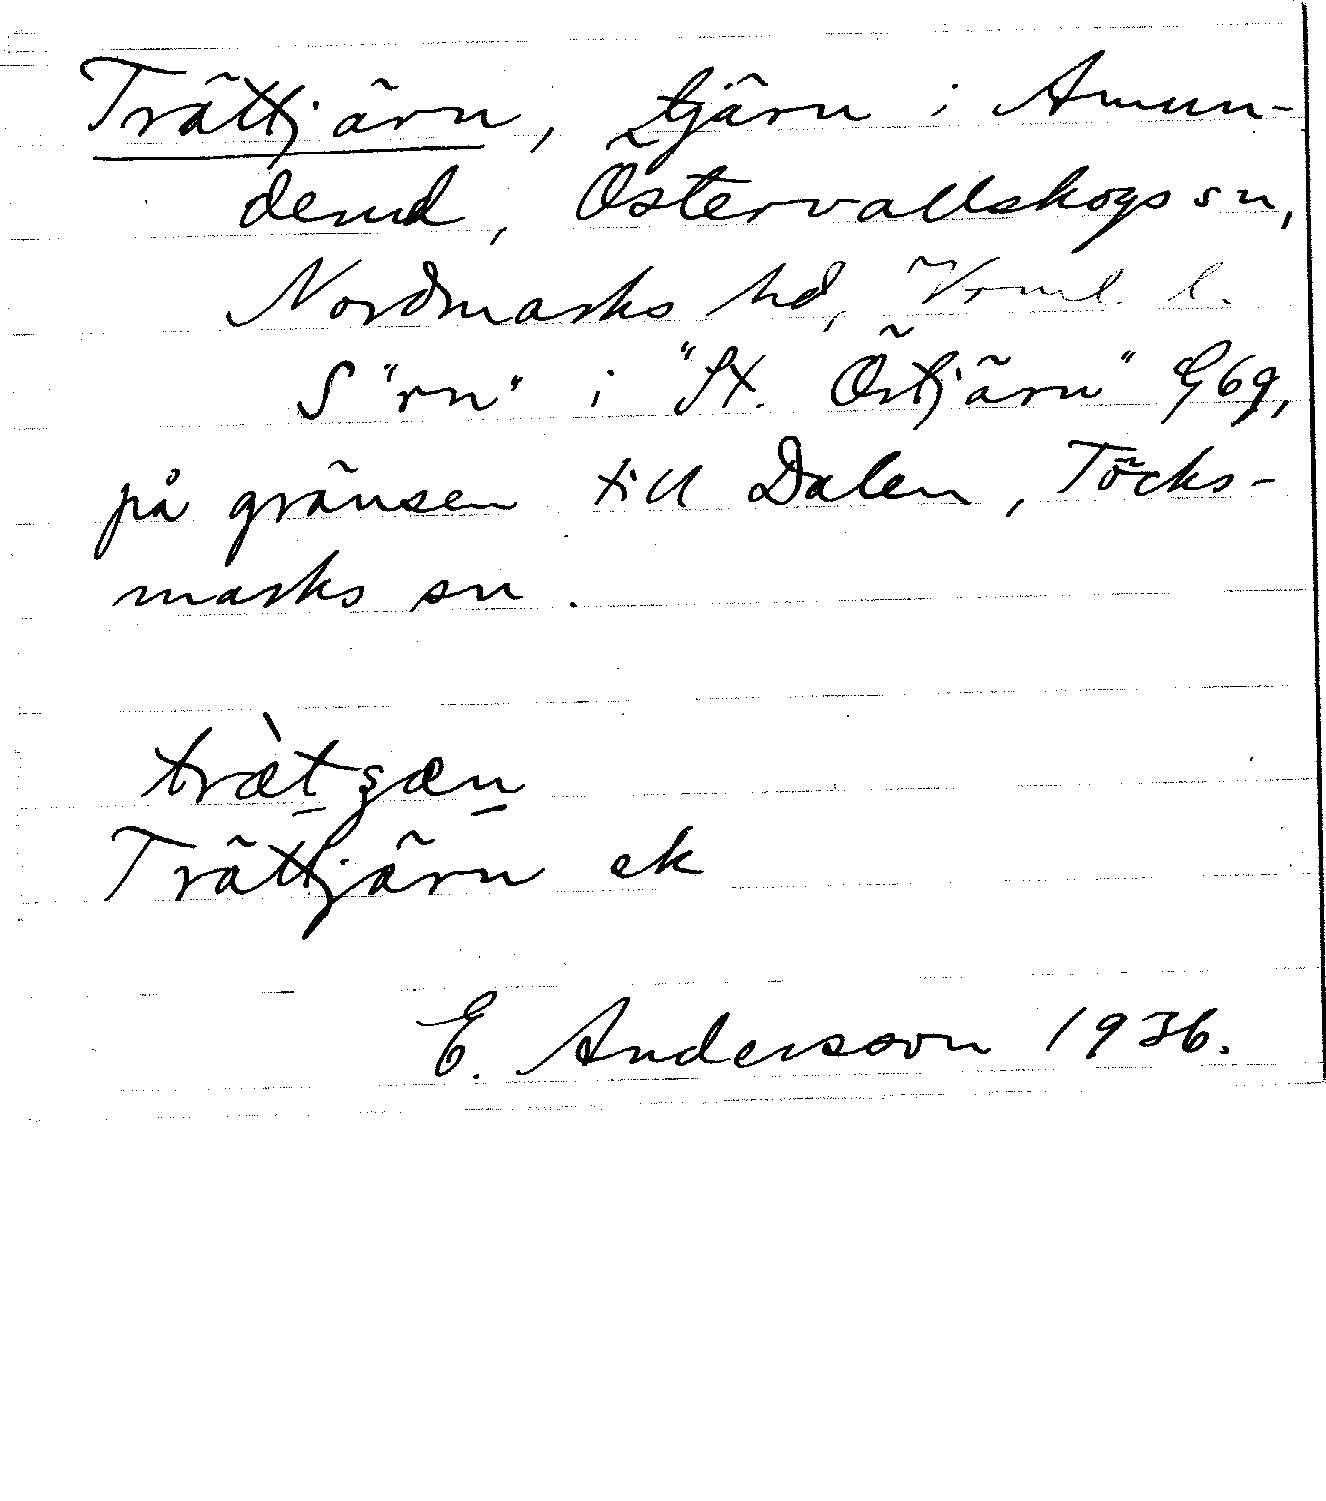 Trättjärn, tjärn i Amun-
derud, Östervallskogs sn,
Nordmarks hd, Vrml. l.
S "rn" i "St. Örtjärn" G69,
på gränsen till Dalen, Töcks-
marks sn.
Trättjärn ek
E. Andersson 1936.